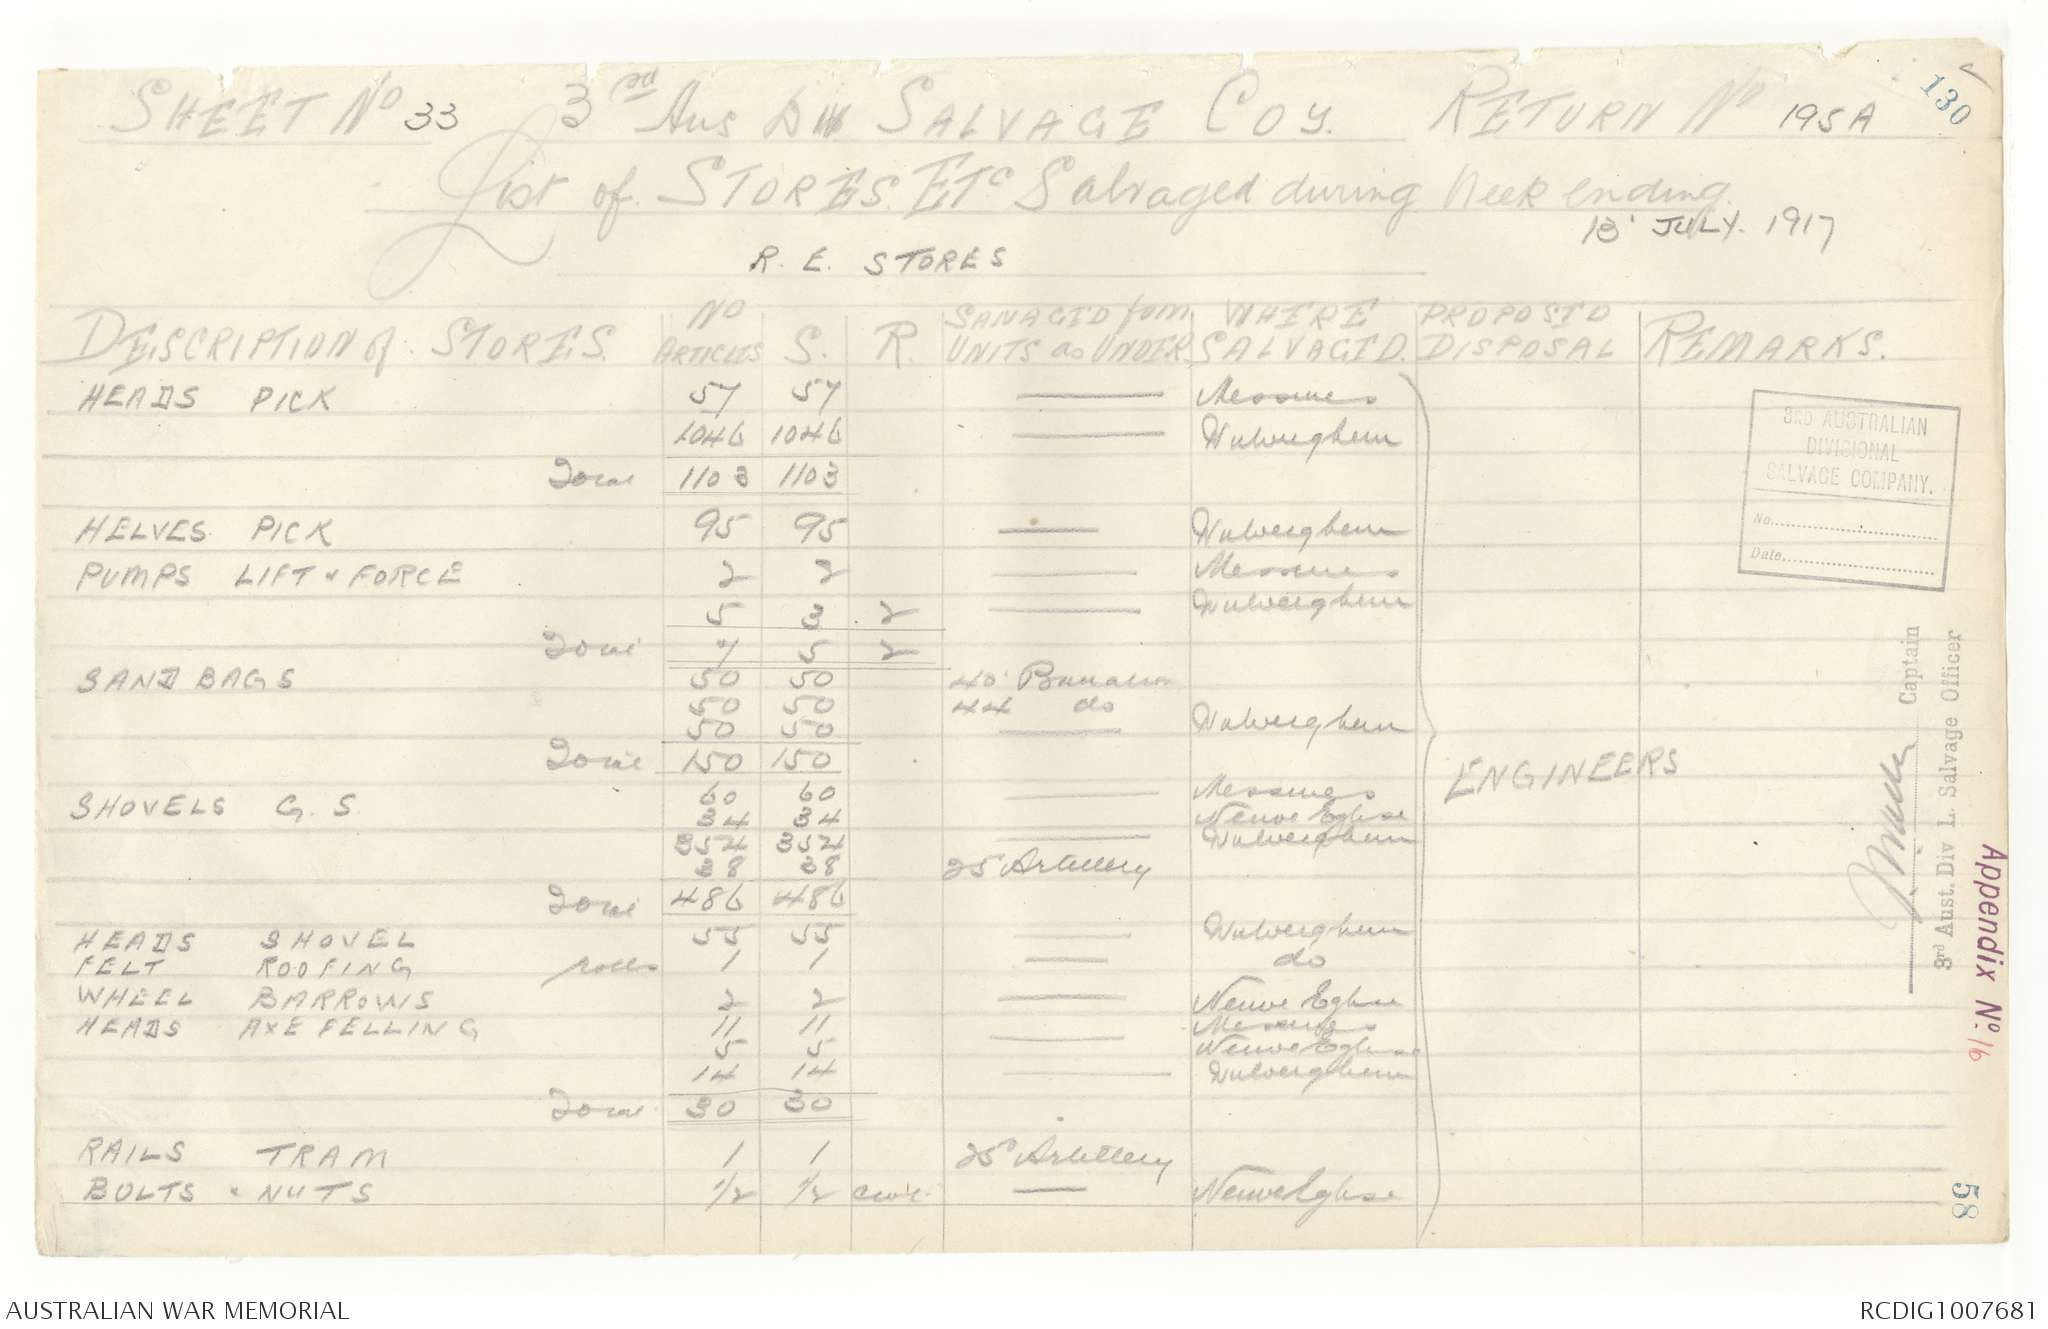 SHEET No 33 3rd Aus Div SALVAGE COY. RETURN No 195A
130
List of STORES. ETC Salvaged during Week ending
13 JULY. 1917
R. E. STORES
DESCRIPTION of STORES. No ARTICLES S. R. SALVAGED from UNITS as UNDER. WHERE SALVAGED. PROPOSED DISPOSAL REMARKS.
HEADS PICK 57 57 — Messines
1046 1046 — Wulverghem
Total 1103 1103
HELVES PICK 95 95 — Wulverghem
PUMPS LIFT & FORCE 2 2 — Messines
5 3 2 — Wulverghem
Total 7 5 2
SAND BAGS 50 50 40 Battalion
50 50 44 do
50 50 — Wulverghem
Total 150 150
ENGINEERS
SHOVELS G.S. 60 60 — Messines
34 34 Neuve Eglise
354 354 — Wulverghem
38 38 25 Artillery
Total 486 486
HEADS SHOVEL 55 55 — Wulverghem
FELT ROOFING rolls 1 1 — do
WHEEL BARROWS 2 2 — Neuve Eglise
HEADS AXE FELLING 11 11 Messines
5 5 — Neuve Eglise
14 14 — Wulverghem
Total 30 30
RAILS TRAM 1 1 25 Artillery
BOLTS & NUTS 1/2 1/2 cwt. — Neuve Eglise
3RD AUSTRALIAN
DIVISIONAL
SALVAGE COMPANY.
No.
Date
Captain
3rd Aust. Div L. Salvage Officer
Appendix No. 16
58
AUSTRALIAN WAR MEMORIAL
RCDIG1007681